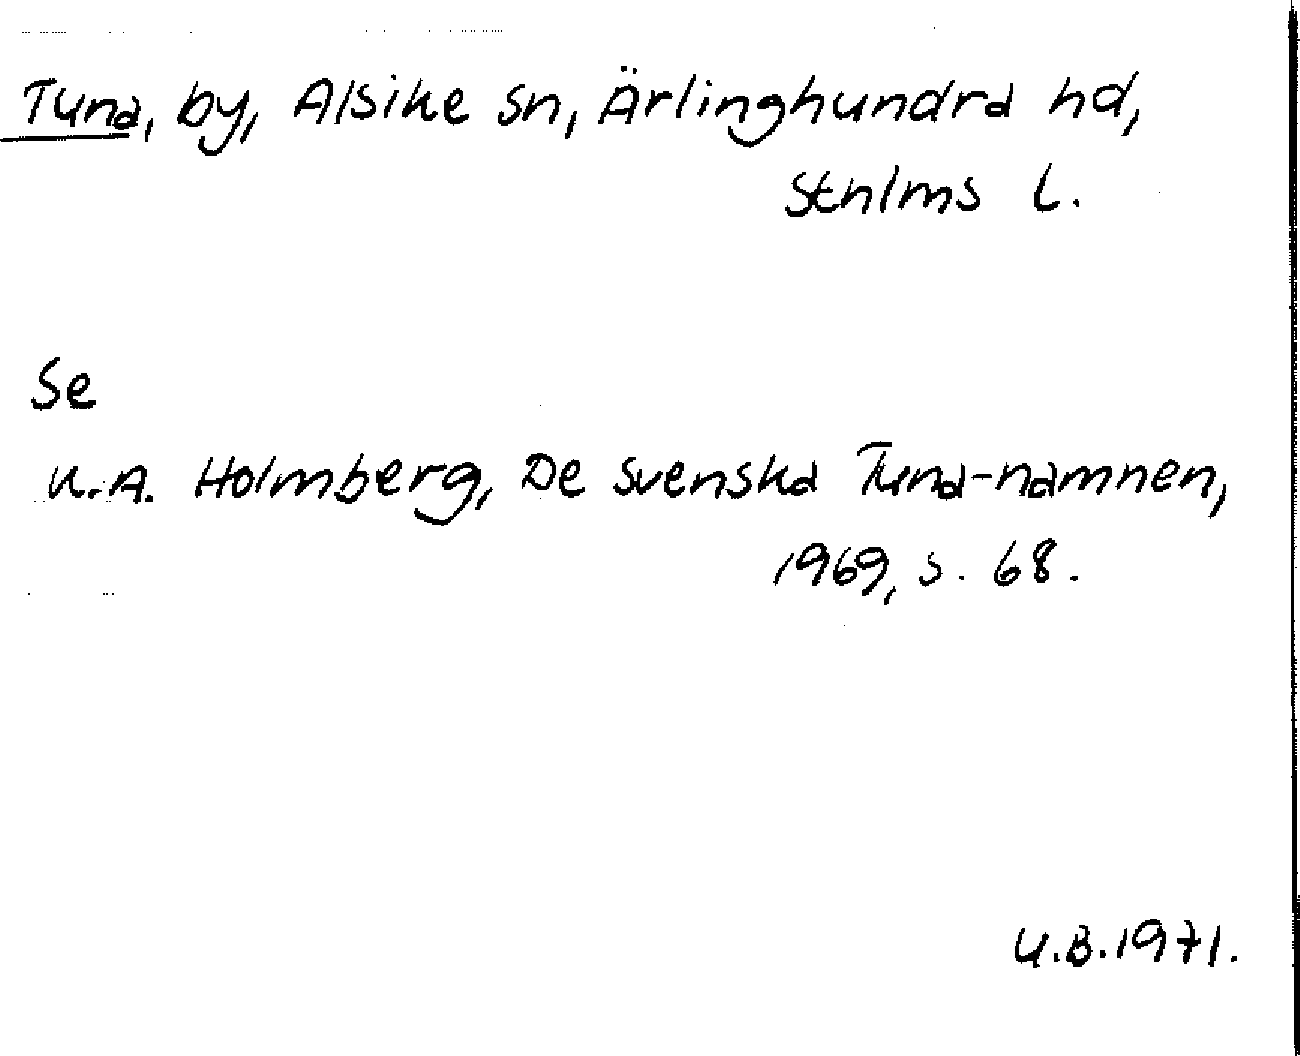 Tuna, by, Alsike sn, Ärlinghundra hd,
Sthlms l.
Se
K.A. Holmberg, De svenska Tuna-namnen,
1969, s. 68.
U.B. 1971.